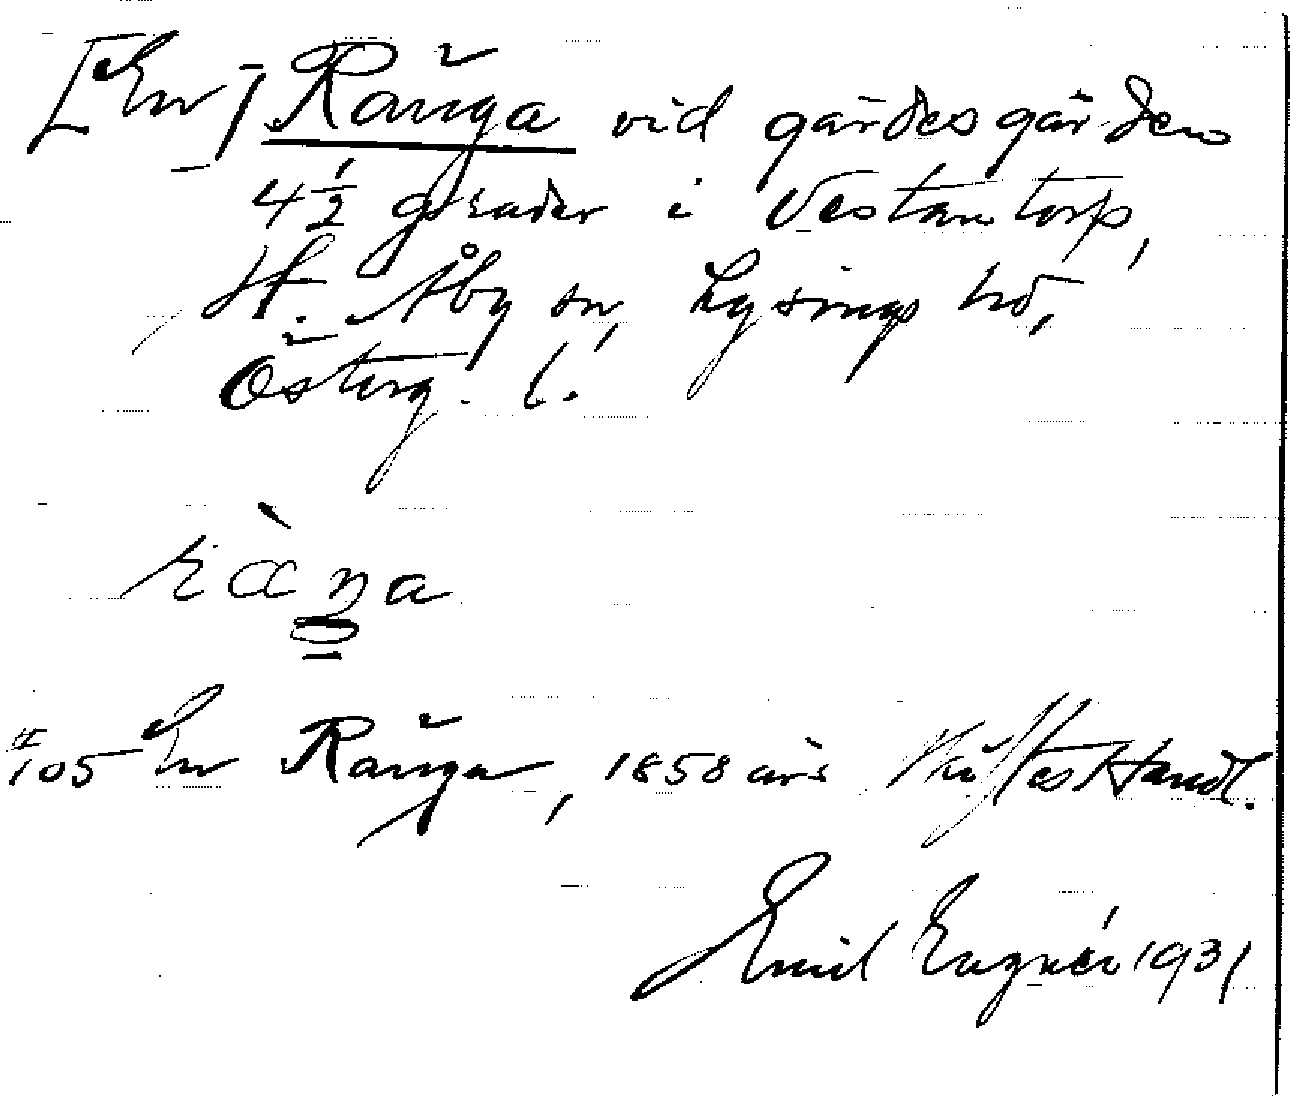 [En] Rånga vid gärdesgården
4½ grader i Vestantorp,
H. Åby sn, Lysings hd,
Österg. l.
ràŋa
#105 En Rånga, 1858 års Skiftes Handl.
Emil Engnér 1931